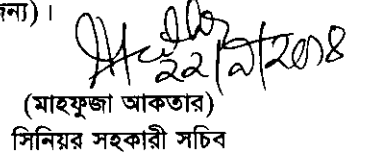 জন্য)।
২২/৯/২০১৪
(মাহফুজা আকতার)
সিনিয়র সহকারী সচিব